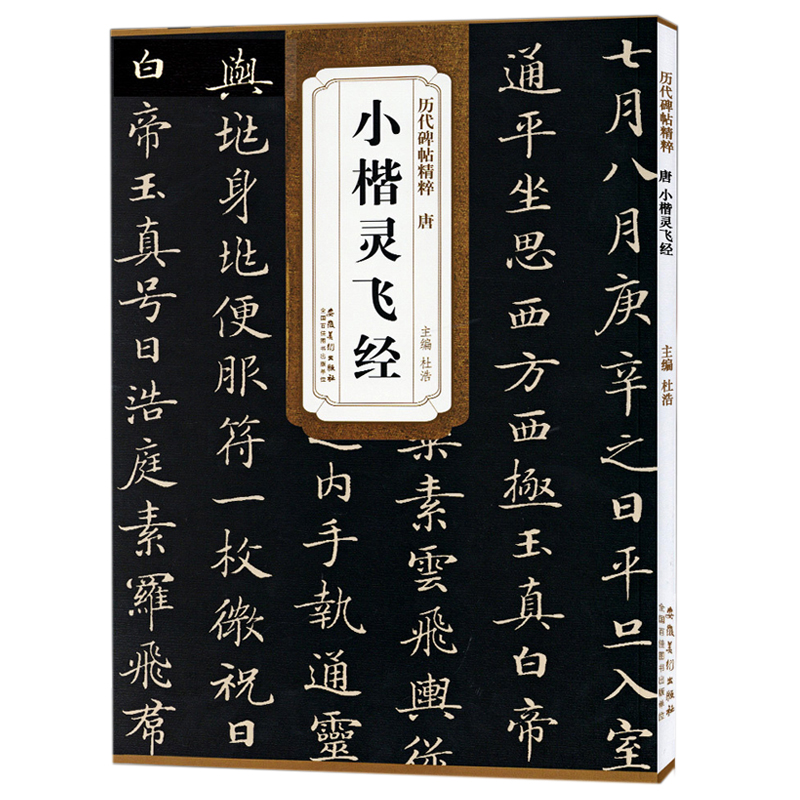 七月八月庚辛之日平旦入室
通平坐思西方西極玉真白帝
素雲飛輿從
内手執通靈
與兆身兆便服符一枚微祝曰
白帝玉真号曰浩庭素羅飛帬
历代碑帖精粹 唐
小楷灵飞经
主编 杜浩
安徽美术出版社
全国百佳图书出版单位
历代碑帖精粹 唐 小楷灵飞经
主编 杜浩
安徽美术出版社
全国百佳图书出版单位